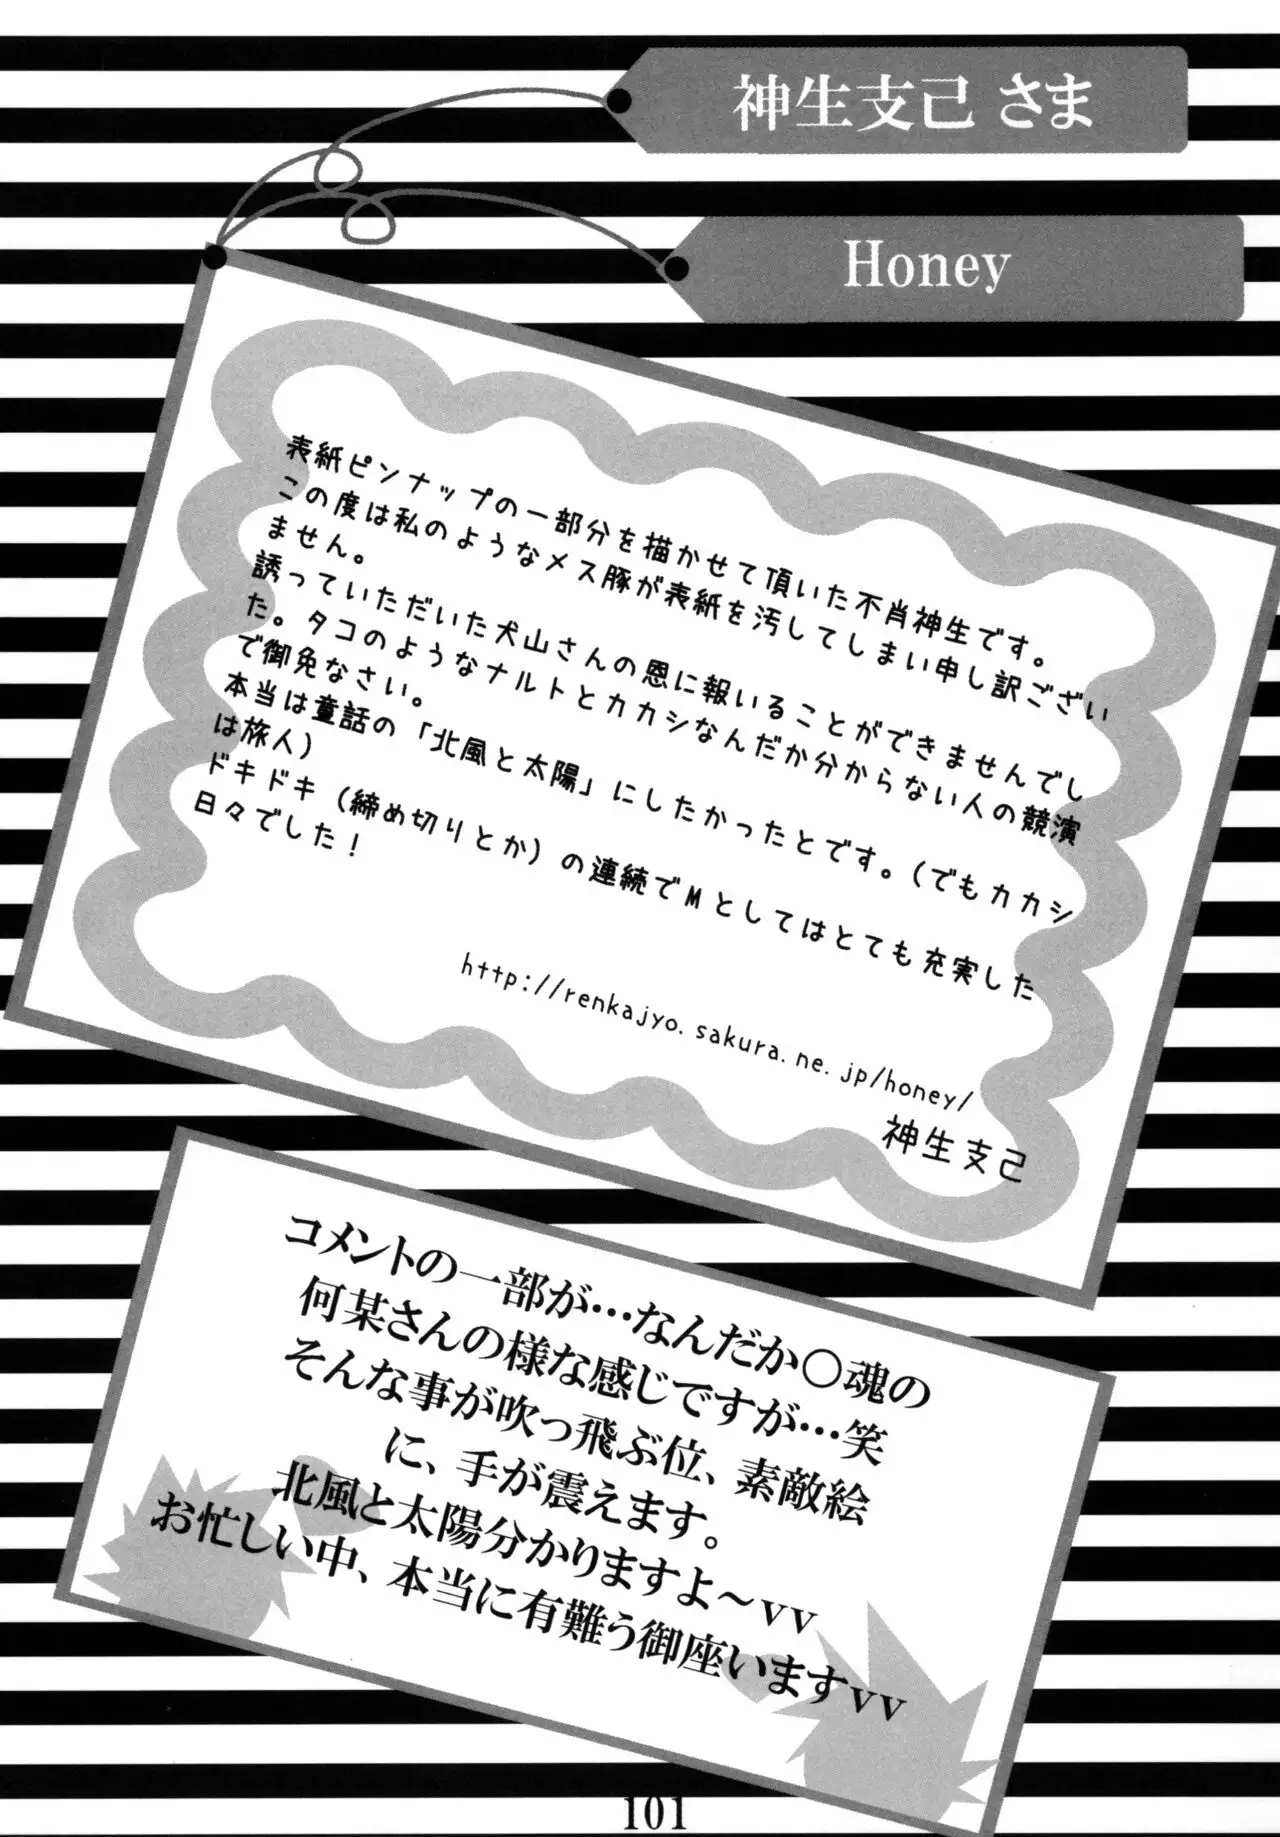 神生支己 さま
Honey
表紙ピンナップの一部分を描かせて頂いた不肖神生です。
この度は私のようなメス豚が表紙を汚してしまい申し訳ござい
ません。
誘っていただいた犬山さんの恩に報いることができませんでし
た。タコのようなナルトとカカシなんだか分からない人の競演
で御免なさい。
本当は童話の「北風と太陽」にしたかったとです。(でもカカシ
は旅人)
ドキドキ(締め切りとか)の連続でMとしてはとても充実した
日々でした！
http://renkajyo.sakura.ne.jp/honey/
神生支己
コメントの一部が…なんだか〇魂の
何某さんの様な感じですが…笑
そんな事が吹っ飛ぶ位、素敵絵
に、手が震えます。
北風と太陽分かりますよ〜vv
お忙しい中、本当に有難う御座いますvv
101